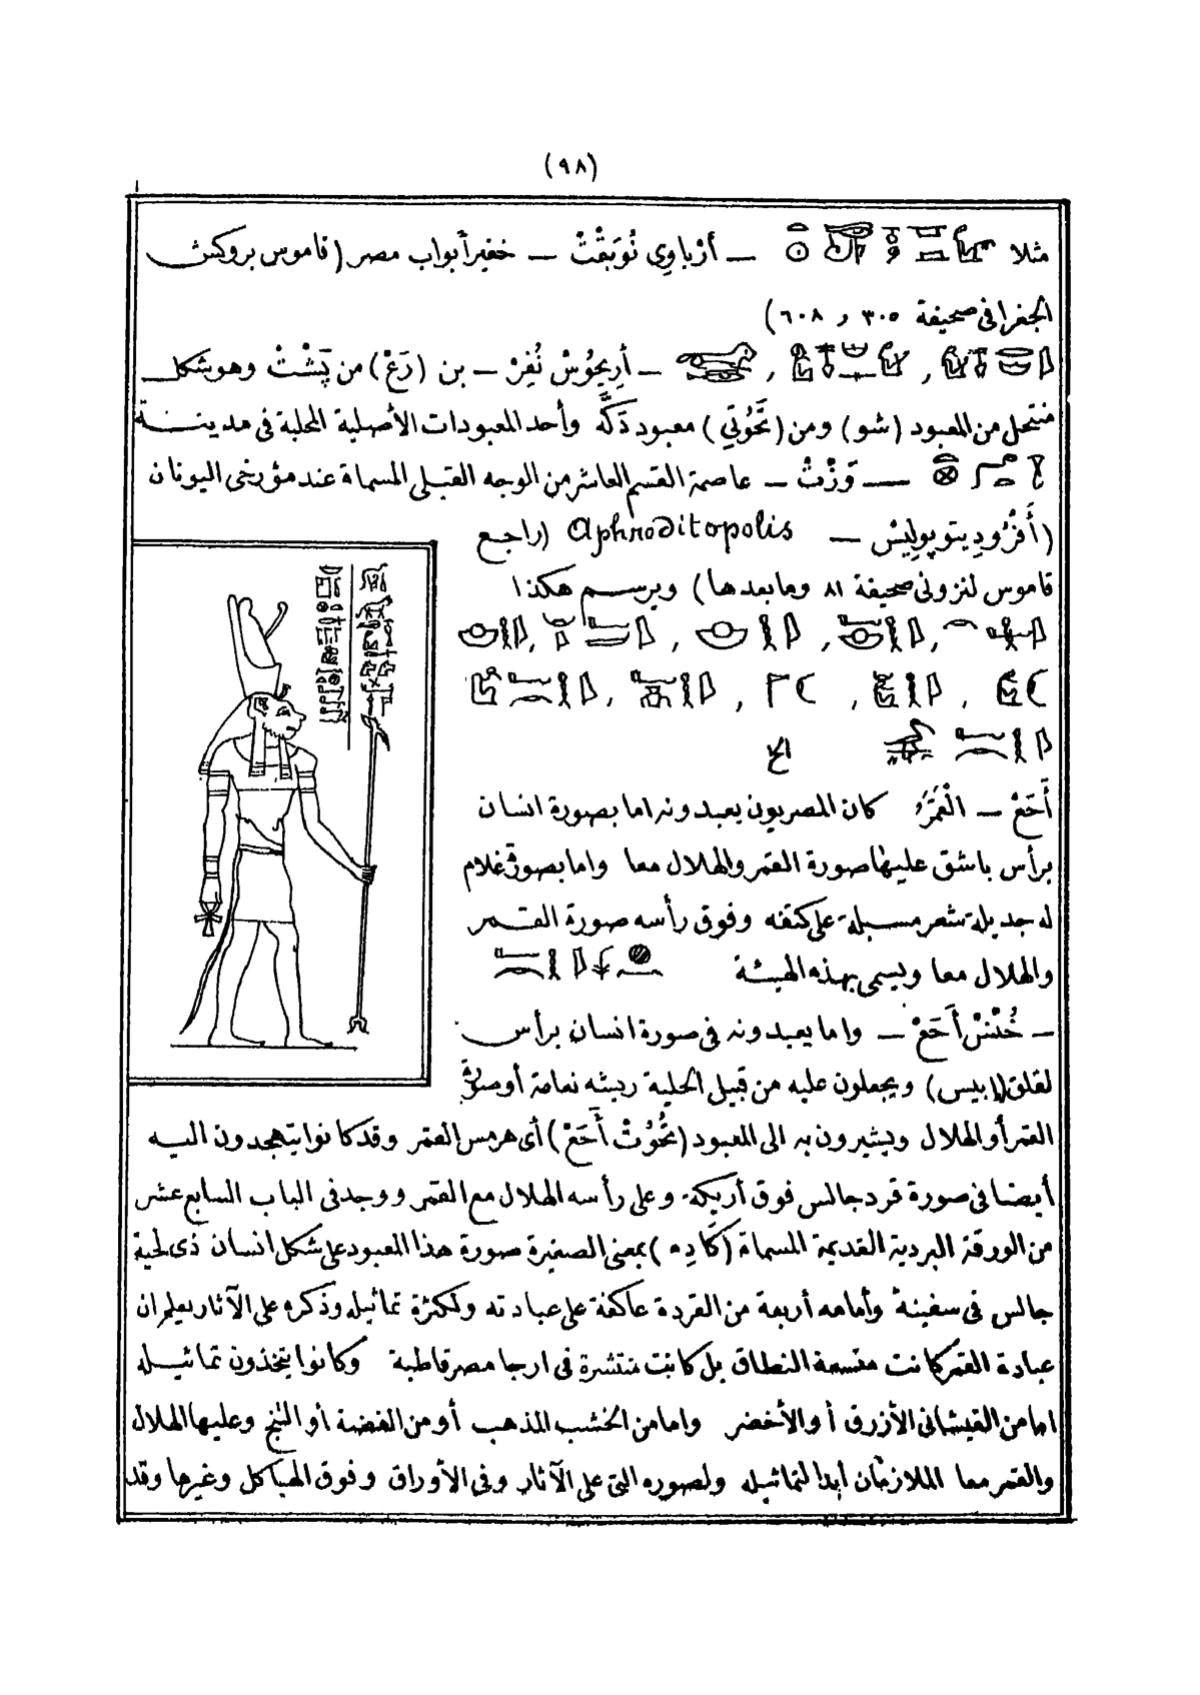 (٩٨)
مثلا — أرْباوِى نُوتِبَقْتْ — خفير أبواب مصر (قاموس بروكش
الجغرافى صحيفة ٣٠٥ و ٦٠٨)
— أرِيحُوسْ نُفِرْ — بن (رَعْ) من پَشْتْ وهو شكل
منتحل من المعبود (شو) ومن (تَحُوتِي) معبود دَكَّه وأحد المعبودات الأصلية المحلية فى مدينة
— وَزْتْ — عاصمة القسم العاشر من الوجه القبلى المسماة عند مؤرخى اليونان
(أَفْرُودِيتوپولِيسْ — Aphroditopolis (راجع
قاموس لنزونى صحيفة ٨١ وما بعدها) ويرسم هكذا
الخ
أَحَعْ — الْقَمَرُ كان المصريون يعبدونه اما بصورة انسان
برأس باشق عليها صورة القمر والهلال معا واما بصورة غلام
له جديلة شعر مسبلة على كتفه وفوق رأسه صورة القمر
والهلال معا ويسمى بهذه الهيئة
— خُنْسْ أَحَعْ — واما يعبدونه فى صورة انسان برأس
لقلق (ابيس) ويجعلون عليه من قبيل الحلية ريشة نعامة أو صورة
القمر أو الهلال ويشيرون به الى المعبود (تَحُوتْ أَحَعْ) أى هرمس القمر وقد كانوا يتهجدون اليه
أيضا فى صورة قرد جالس فوق أريكة وعلى رأسه الهلال مع القمر ووجد فى الباب السابع عشر
من الورقة البردية القديمة المسماة (كَادِه) بمعنى الصغيرة صورة هذا المعبود على شكل انسان ذى لحية
جالس فى سفينة وأمامه أربعة من القردة عاكفة على عبادته ولكثرة تماثيله وذكره على الآثار يعلم ان
عبادة القمر كانت متسعة النطاق بل كانت منتشرة فى ارجا مصر قاطبة وكانوا يتخذون تماثيله
اما من القيشانى الأزرق أو الأخضر واما من الخشب المذهب أو من الفضة أو التبج وعليها الهلال
والقمر معا الملازمان أبدا لتماثيله ولصوره التى على الآثار وفى الأوراق وفوق الهياكل وغيرها وقد